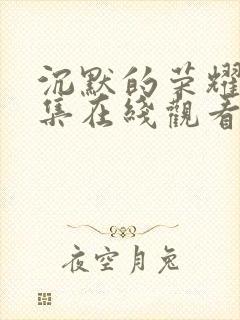 沉默的荣耀
集在綫觀看
夜空月兔